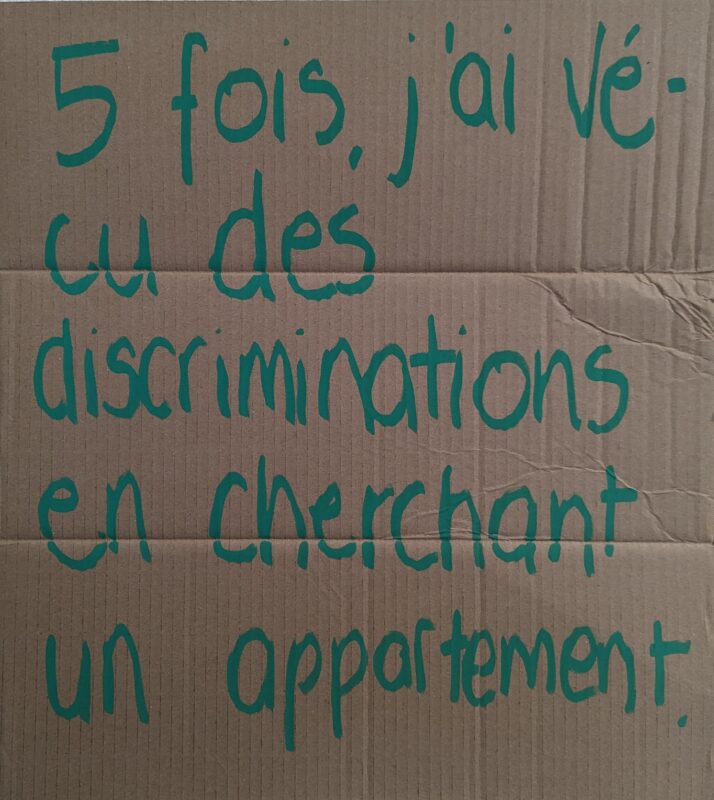 5 fois, j'ai vé-
cu des
discriminations
en cherchant
un appartement.